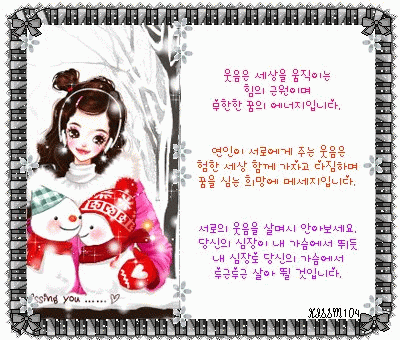 웃음은 세상을 움직이는
힘의 근원이며
무한한 꿈의 에너지입니다.
연인이 서로에게 주는 웃음은
험한 세상 함께 가자고 다짐하며
꿈을 심는 희망에 메세지입니다.
서로의 웃음을 살며시 안아보세요.
당신의 심장이 내 가슴에서 뛰듯
내 심장도 당신의 가슴에서
두근두근 살아 뛸 것입니다.
issing you ...... ♡
XISSM104